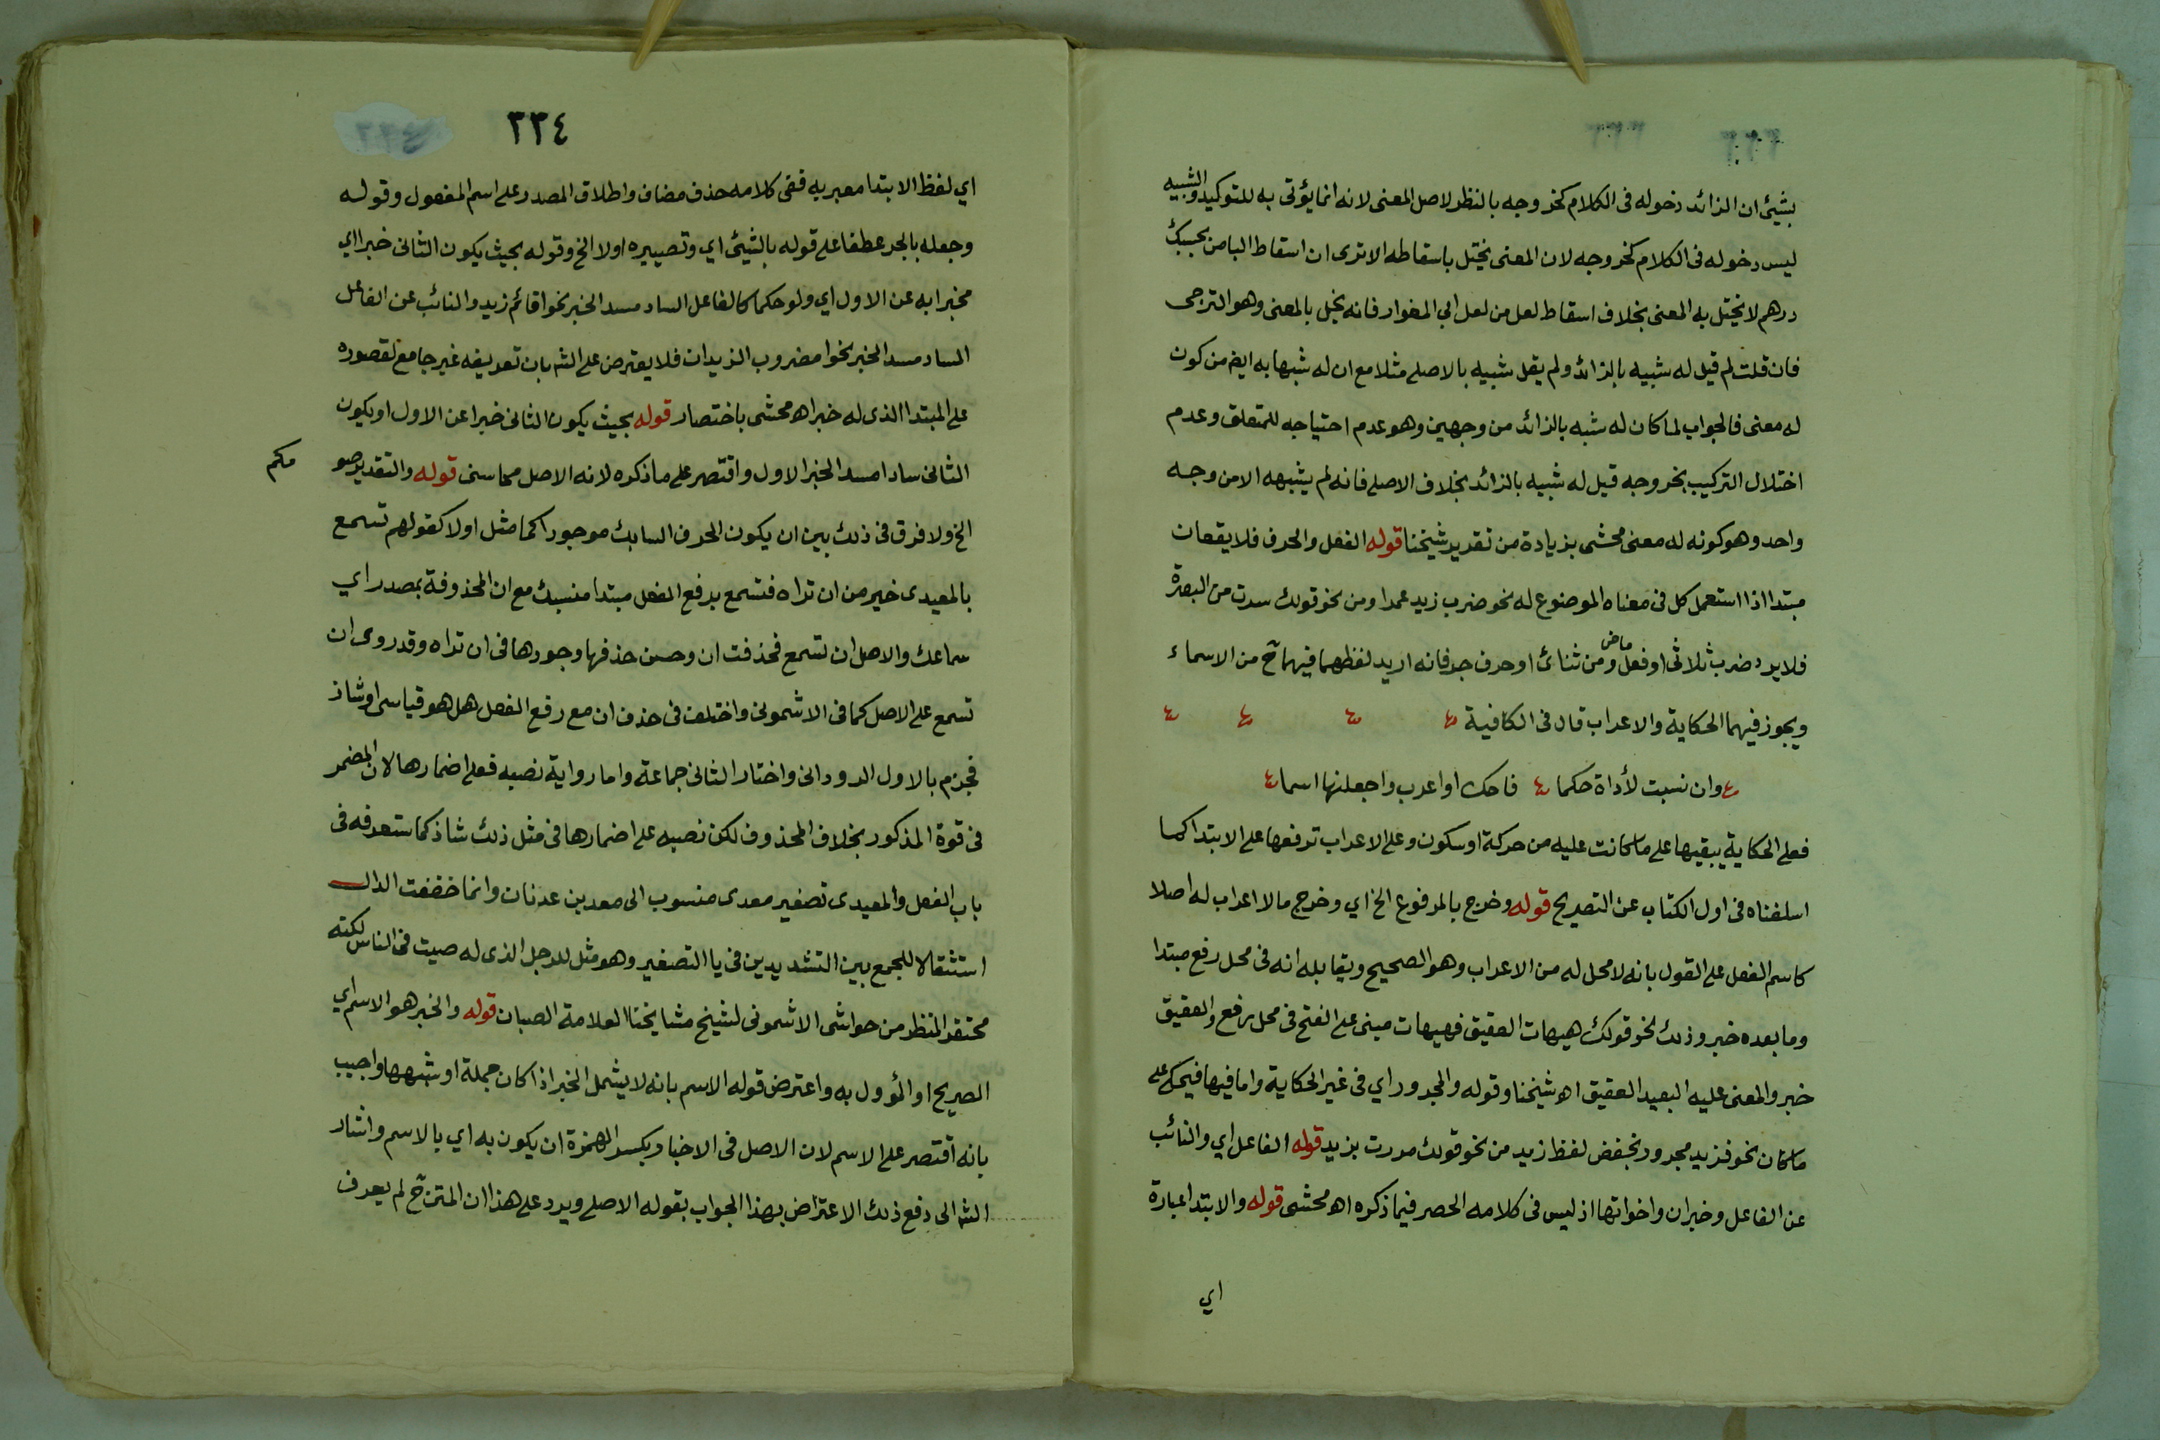 بشيئ ان الزائد دخوله فى الكلام كخروجه بالنظر لاصل المعنى لانه انما يؤتى به للتوكيد والشبيه
ليس دخوله فى الكلام كخروجه لان المعنى يختل باسقاطه الا ترى ان اسقاط البا من بحسبك
درهم لا يختل به المعنى بخلاف اسقاط لعل من لعل ابي المغوار فانه يخل بالمعنى وهو الترجى
فان قلت لم قيل له شبيه بالزائد ولم يقل شبيه بالاصلى مثلا مع ان له شبها به ايض من كون
له معنى فالجواب لما كان له شبه بالزائد من وجهين وهو عدم احتياجه للمتعلق وعدم
اختلال التركيب بخروجه قيل له شبيه بالزائد بخلاف الاصلى فانه لم يشبهه الا من وجه
واحد وهو كونه له معنى محشى بزيادة من تقرير شيخنا قوله الفعل والحرف فلا يقعان
مبتدا اذا استعمل كل فى معناه الموضوع له نحو ضرب زيد عمرا ومن نحو قولك سرت من البصرة
فلا يرد ضرب ثلاثى او فعل ماض ومن ثنائى او حرف جر فانه اريد لفظهما فيهما ح من الاسماء
ويجوز فيهما الحكاية والاعراب قال فى الكافية
وان نسبت لأداة حكما فاحك او اعرب واجعلنها اسما
فعلى الحكاية يبقيها على ما كانت عليه من حركة او سكون وعلى الاعراب ترفعها على الابتدا كما
اسلفناه فى اول الكتاب عن التصريح قوله وخرج بالمرفوع الخ اي وخرج ما لا اعراب له اصلا
كاسم الفعل على القول بانه لا محل له من الاعراب وهو الصحيح ويقابله انه فى محل رفع مبتدا
وما بعده خبر وذلك نحو قولك هيهات العقيق فهيهات مبنى على الفتح فى محل رفع والعقيق
خبر والمعنى عليه البعيد العقيق اه شيخنا وقوله والمجرور اي فى غير الحكاية واما فيها فيحكى على
ما كان نحو فزيد مجرور بخفض لفظ زيد من نحو قولك مررت بزيد قوله الفاعل اي والنائب
عن الفاعل وخبر ان واخواتها اذ ليس فى كلامه الحصر فيما ذكره اه محشى قوله والابتدا عبارة
اي
٣٣٤
اي لفظ الابتدا معبر به ففى كلامه حذف مضاف واطلاق المصدر على اسم المفعول وقوله
وجعله بالجر عطفا على قوله بالشيئ اي وتصييره اولا الخ وقوله بحيث يكون الثانى خبرا اي
مخبرا به عن الاول اي ولو حكما كالفاعل الساد مسد الخبر نحو اقائم زيد والنائب عن الفاعل
الساد مسد الخبر نحو امضروب الزيدان فلا يعترض على الش بان تعريفه غير جامع لقصوره
على المبتدا الذى له خبر اه محشى باختصار قوله بحيث يكون الثانى خبرا عن الاول او يكون
الثانى سادا مسد الخبر الاول واقتصر على ما ذكره لانه الاصل قوله والتقدير صو
مكم
الخ ولا فرق فى ذلك بين ان يكون الحرف السابك موجودا كما مثل اولا كقولهم تسمع
بالمعيدى خير من ان تراه فتسمع برفع الفعل مبتدا منسبك مع ان المحذوفة بمصدر اي
سماعك والاصل ان تسمع فحذفت ان وحسن حذفها وجودها فى ان تراه وقد روى ان
تسمع على الاصل كما فى الاشمونى واختلف فى حذف ان مع رفع الفعل هل هو قياسى او شاذ
فجزم بالاول الدودانى واختار الثانى جماعة واما رواية نصبه فعلى اضمارها لان المضمر
فى قوة المذكور بخلاف المحذوف لكن نصبه على اضمارها فى مثل ذلك شاذ كما ستعرفه فى
باب الفعل والمعيدى تصغير معدى منسوب الى معد بن عدنان وانما خففت الدال
استثقالا للجمع بين التشديدين فى يا التصغير وهو مثل للرجل الذى له صيت فى الناس لكنه
محتقر المنظر من حواشى الاشمونى لشيخ مشايخنا العلامة الصبان قوله والخبر هو الاسم اي
الصريح او المؤول به واعترض قوله الاسم بانه لا يشمل الخبر اذا كان جملة او شبهها واجيب
بانه اقتصر على الاسم لان الاصل فى الاخبار بكسر الهمزة ان يكون به اي بالاسم واشار
الش الى دفع ذلك الاعتراض بهذا الجواب بقوله الاصلى ويرد على هذا ان المتن ح لم يعرف